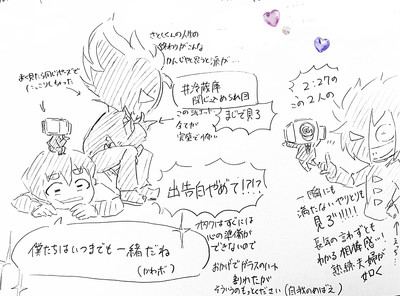 さとしくんの人生の
終わりがこんな
かんじやと思うと涙が…
よく見たら同じポーズで
にっこりしちゃった
#冷蔵庫
閉じ込められ回
まじで見ろ
このショート
全てが
完璧でつらい
2:27の
この2人の
一瞬にも
満たないやりとり
見ろ!!!!!
長年の言わずとも
わかる相棒感…!
熟練夫婦が
如く
出告白やめて!?!?
オタクはすぐには
心の準備が
できないので
おかげでガラスのハート
割れたが
そういうのもっとください
(自我のめばえ)
僕たちはいつまでも一緒だね
(かわボ)